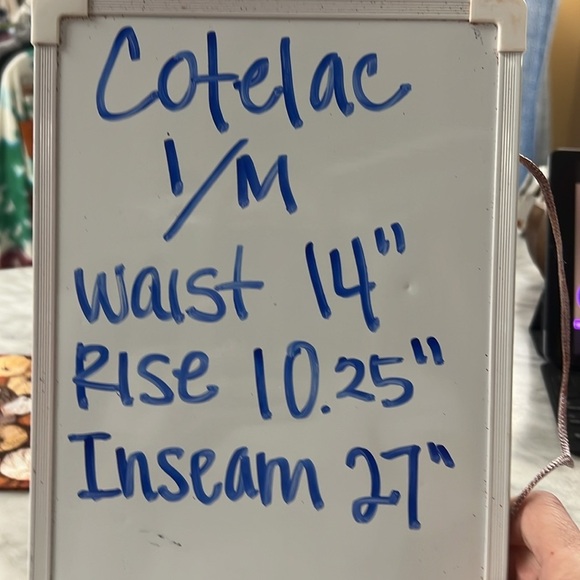 Cotelac
1/M
Waist 14"
Rise 10.25"
Inseam 27"